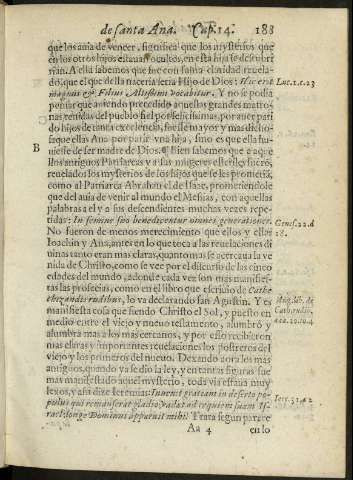 de santa Ana. Cap. 14. 188
que los auia de vencer, significa que los mysterios que
en los otros hijos estauan ocultos, en esta hija se descubri
rian. A ella sabemos que fue con suma claridad reuela-
do, que el que della naceria seria Hijo de Dios: Hic erit Luc. 1. c. 23
magnus & Filius Altissimi vocabitur. Y no se podia
pensar que auiendo precedido aquellas grandes matro-
nas tenidas del pueblo fiel por felicissimas, por auer pari
do hijos de tanta excelencia, fuesse mayor y mas dicho-
sa que ellas Ana por parir vna hija, sino es que ella hu-
B uiesse de ser madre de Dios. Bien sabemos que a aque
llos antiguos Patriarcas y a sus mugeres esteriles fueró
reuelados los mysterios de los hijos que se les prometia,
como al Patriarca Abrahan el de Isaac, prometiendole
que del auia de venir al mundo el Mesias, con aquellas
palabras a el y a sus descendientes muchas vezes repe-
tidas: In semine tuo benedicentur omnes generationes. Genes. 22. d
No fueron de menos merecimiento que ellos y ellas 18.
Ioachin y Ana, antes en lo que toca a las reuelaciones di
uinas tanto eran mas claras, quanto mas se acercaua la ve
nida de Christo, como se vee por el discurso de las cinco
edades del mundo, adonde cada vez son mas manifes-
tas las profecias, como en el libro que escriuio de Cathe
chizandis rudibus, lo va declarando san Agustin. Y es Aug. lib. de
manifiesta cosa que siendo Christo el Sol, y puesto en Cath. rudib.
medio entre el viejo y nueuo testamento, alumbró y
alumbra mas a los mas cercanos, y por esso recibieron
mas claras y importantes reuelaciones los postreros del
viejo y los primeros del nueuo. Dexando aora los mas
antiguos, quando ya se dio la ley, y en tantas figuras fue
mas manifestado aquel mysterio, toda via estaua muy
lexos, y assi dize Ieremias: Inuenit gratiam in deserto po Iere. 31. a 2
pulus qui remanserat gladio, vadet ad requiem suam Is-
rael: longe Dominus apparuit mihi. Trata segun parece
Aa 4 en lo